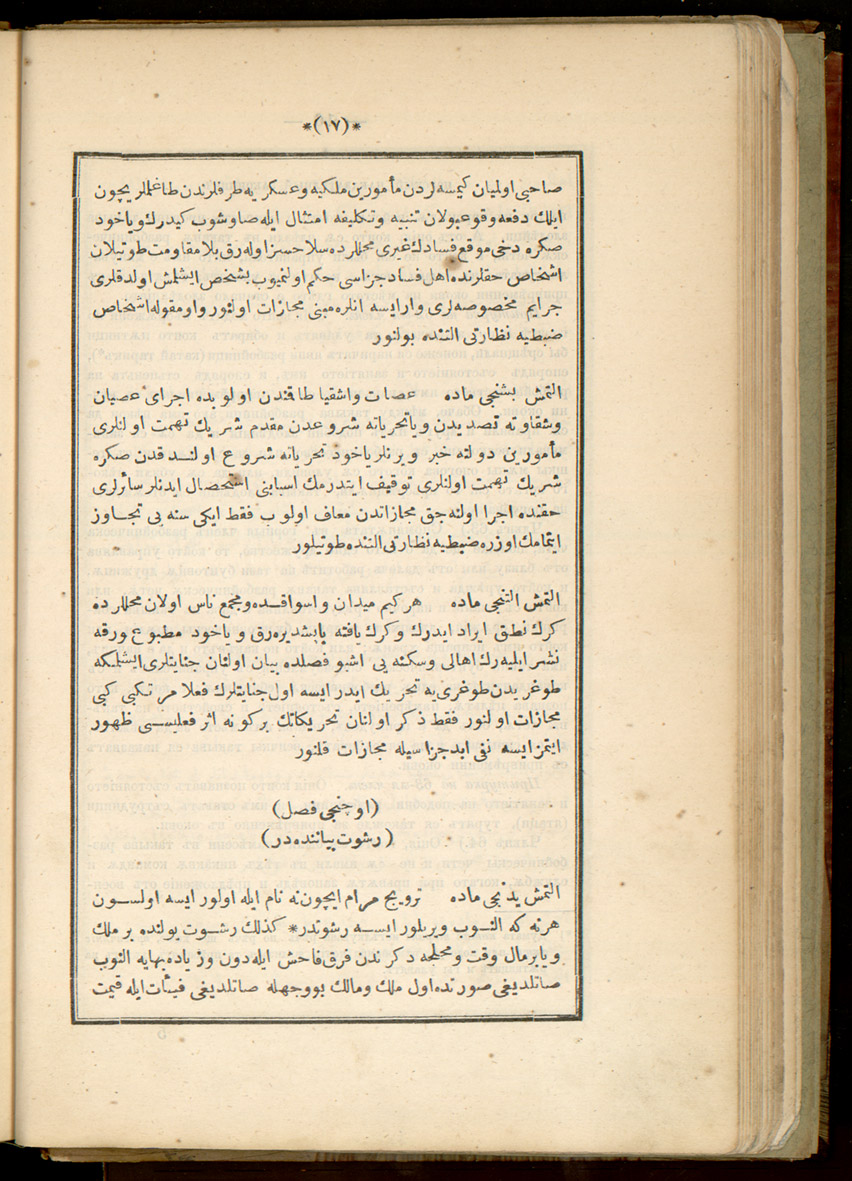 *(١٧)*
صاحبی اولمیان کیمسه لردن مأمورین ملکیه وعسکریه طرفلرندن طاغملریچون
ایلك دفعه وقوعبولان تنبیه وتکلیفه امتثال ایله صاوشوب کیدرك ویاخود
صکره دخی موقع فسادك غیری محللرده سلاحسز اوله رق بلا مقاومت طوتیلان
اشخاص حقلرنده اهل فساد جزاسی حکم اولنمیوب بشخص ایشلمش اولدقلری
جرایم مخصوصه لری وارایسه انلره مبنی مجازات اولنور واومقوله اشخاص
ضبطیه نظارتی التنده بولنور
التمش بشنجی ماده عصات واشقیا طاقندن اولوبده اجرای عصیان
وشقاوته تصدیدن ویاتحریاته شروعدن مقدم شریك تهمت اولنلری
مأمورین دولته خبر ویرنلر یاخود تحریاته شروع اولندقدن صکره
شریك تهمت اولنلری توقیف ایتدرمك اسبابنی استحصال ایدنلر سائرلری
حقنده اجرا اولنه جق مجازاتدن معاف اولوب فقط ایکی سنه یی تجاوز
ایتمامك اوزره ضبطیه نظارتی التنده طوتیلور
التمش التنجی ماده هرکیم میدان واسواقده ومجمع ناس اولان محللرده
کرك نطق ایراد ایدرك وکرك یافته یاپشدیره رق ویاخود مطبوع ورقه
نشر ایلیه رك اهالی وسکنه یی اشبو فصلده بیان اولنان جنایتلری ایشلمکه
طوغریدن طوغری یه تحریك ایدر ایسه اول جنایتلرك فعلا مرتکبی کبی
مجازات اولنور فقط ذکر اولنان تحریکاتك برکونه اثر فعلیسی ظهور
ایتمز ایسه نفی ابد جزاسیله مجازات قلنور
(اوچنجی فصل)
(رشوت بیاننده در)
التمش یدنجی ماده ترویج مرام ایچون نه نام ایله اولور ایسه اولسون
هرنه که النوب ویریلور ایسه رشوتدر* کذلك رشوت یولنده بر ملك
ویابرمال وقت ومحلجه دکرندن فرق فاحش ایله دون وزیاده بهایه النوب
صاتلدیغی صورتده اول ملك ومالك بووجهله صاتلدیغی فیئات ایله قیمت